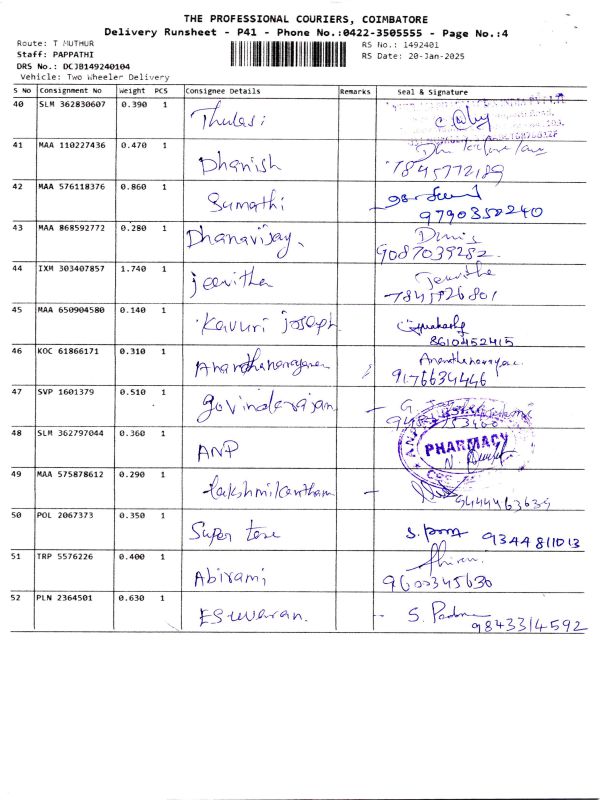 THE PROFESSIONAL COURIERS, COIMBATORE
Delivery Runsheet - P41 - Phone No.:0422-3505555 - Page No.:4
Route: T MUTHUR
RS No.: 1492401
Staff: PAPPATHI
RS Date: 20-Jan-2025
DRS No.: DCJB149240104
Vehicle: Two Wheeler Delivery
S No Consignment No Weight PCS Consignee Details Remarks Seal & Signature
40 SLM 362830607 0.390 1 Thulasi
41 MAA 110227436 0.470 1 Dhanish
7845772189
42 MAA 576118376 0.860 1 Sumathi
9790350240
43 MAA 868592772 0.280 1 Dhanavijay.
9087039282.
44 IXM 303407857 1.740 1 Jeevitha Jeevitha
7845926801
45 MAA 650904580 0.140 1 Kavuri joseph
8610452415
46 KOC 61866171 0.310 1 Ananthanarayanan Ananthanarayanan
9176634446
47 SVP 1601379 0.510 1 govindarajan
48 SLM 362797044 0.360 1 ANP PHARMACY
49 MAA 575878612 0.290 1 Lakshmikantham
9444463639
50 POL 2067373 0.350 1 Super tex 9344811013
51 TRP 5576226 0.400 1 Abirami
9600345630
52 PLN 2364501 0.630 1 ESwaran. S. Padma
9843314592